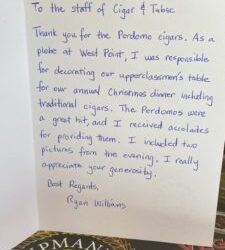 To the staff of Cigar & Tabac
Thank you for the Perdomo cigars. As a
plebe at West Point, I was responsible
for decorating our upperclassmen's table
for our annual Christmas dinner including
traditional cigars. The Perdomos were
a great hit, and I received accolades
for providing them. I included two
pictures from the evening. I really
appreciate your generosity.
Best Regards,
Ryan Williams
UPMANN